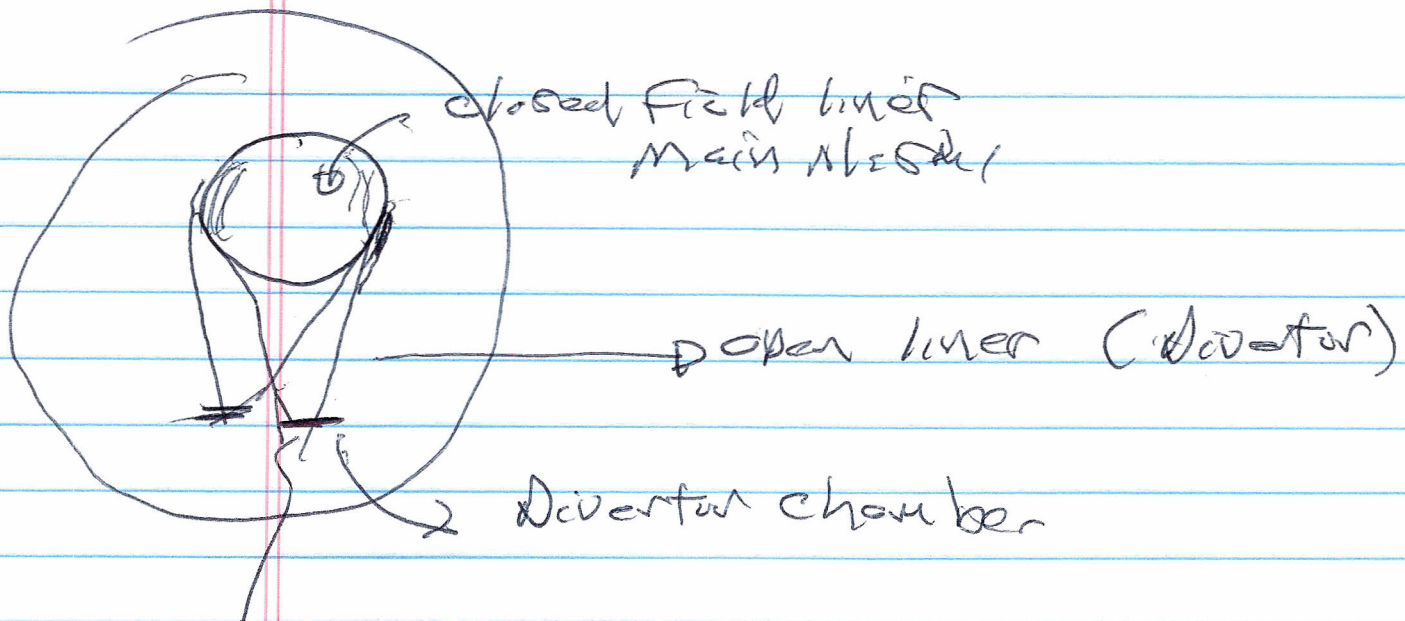 closed Field lines
Main
open lines (Divertor)
Divertor chamber